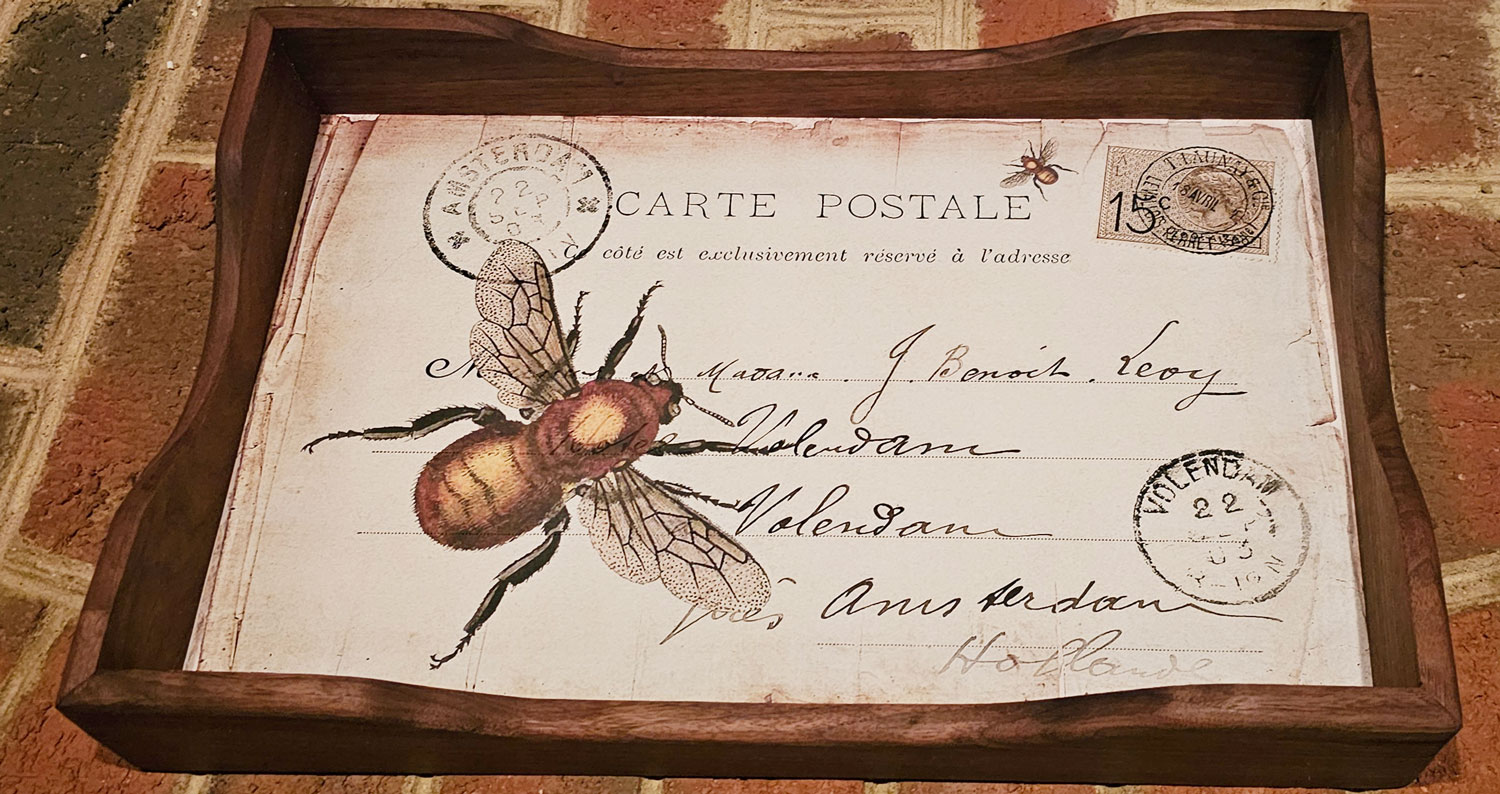 AMSTERDAM
22
CARTE POSTALE
côté est exclusivement réservé à l'adresse
15
18 AVRIL
M Madame J. Benoit Levy
Hotel Volendam
Volendam
près Amsterdam
Hollande
VOLENDAM
22
03